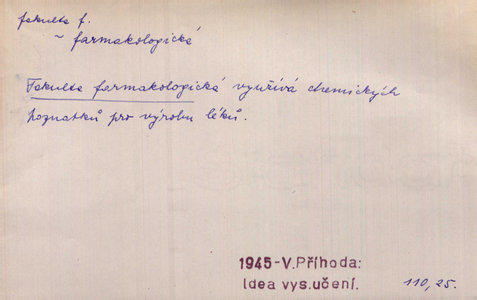 fakulta f.
~ farmakologická
Fakulta farmakologická využívá chemických
poznatků pro výrobu léků.
1945-V.Příhoda:
Idea vys.učení.
110,25.